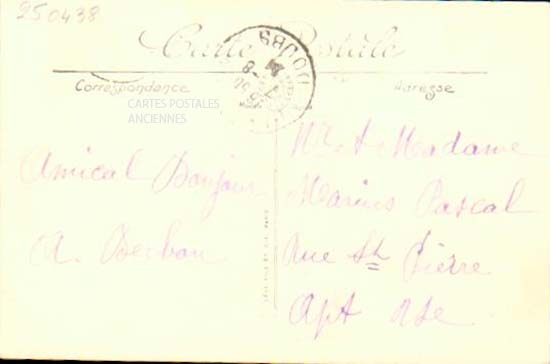 250438
Carte Postale
Correspondance
Adresse
CARTES POSTALES
ANCIENNES
DOUBS
Amical Bonjour
A.
Mr & Madame
Marius Pascal
Rue St Pierre
Apt